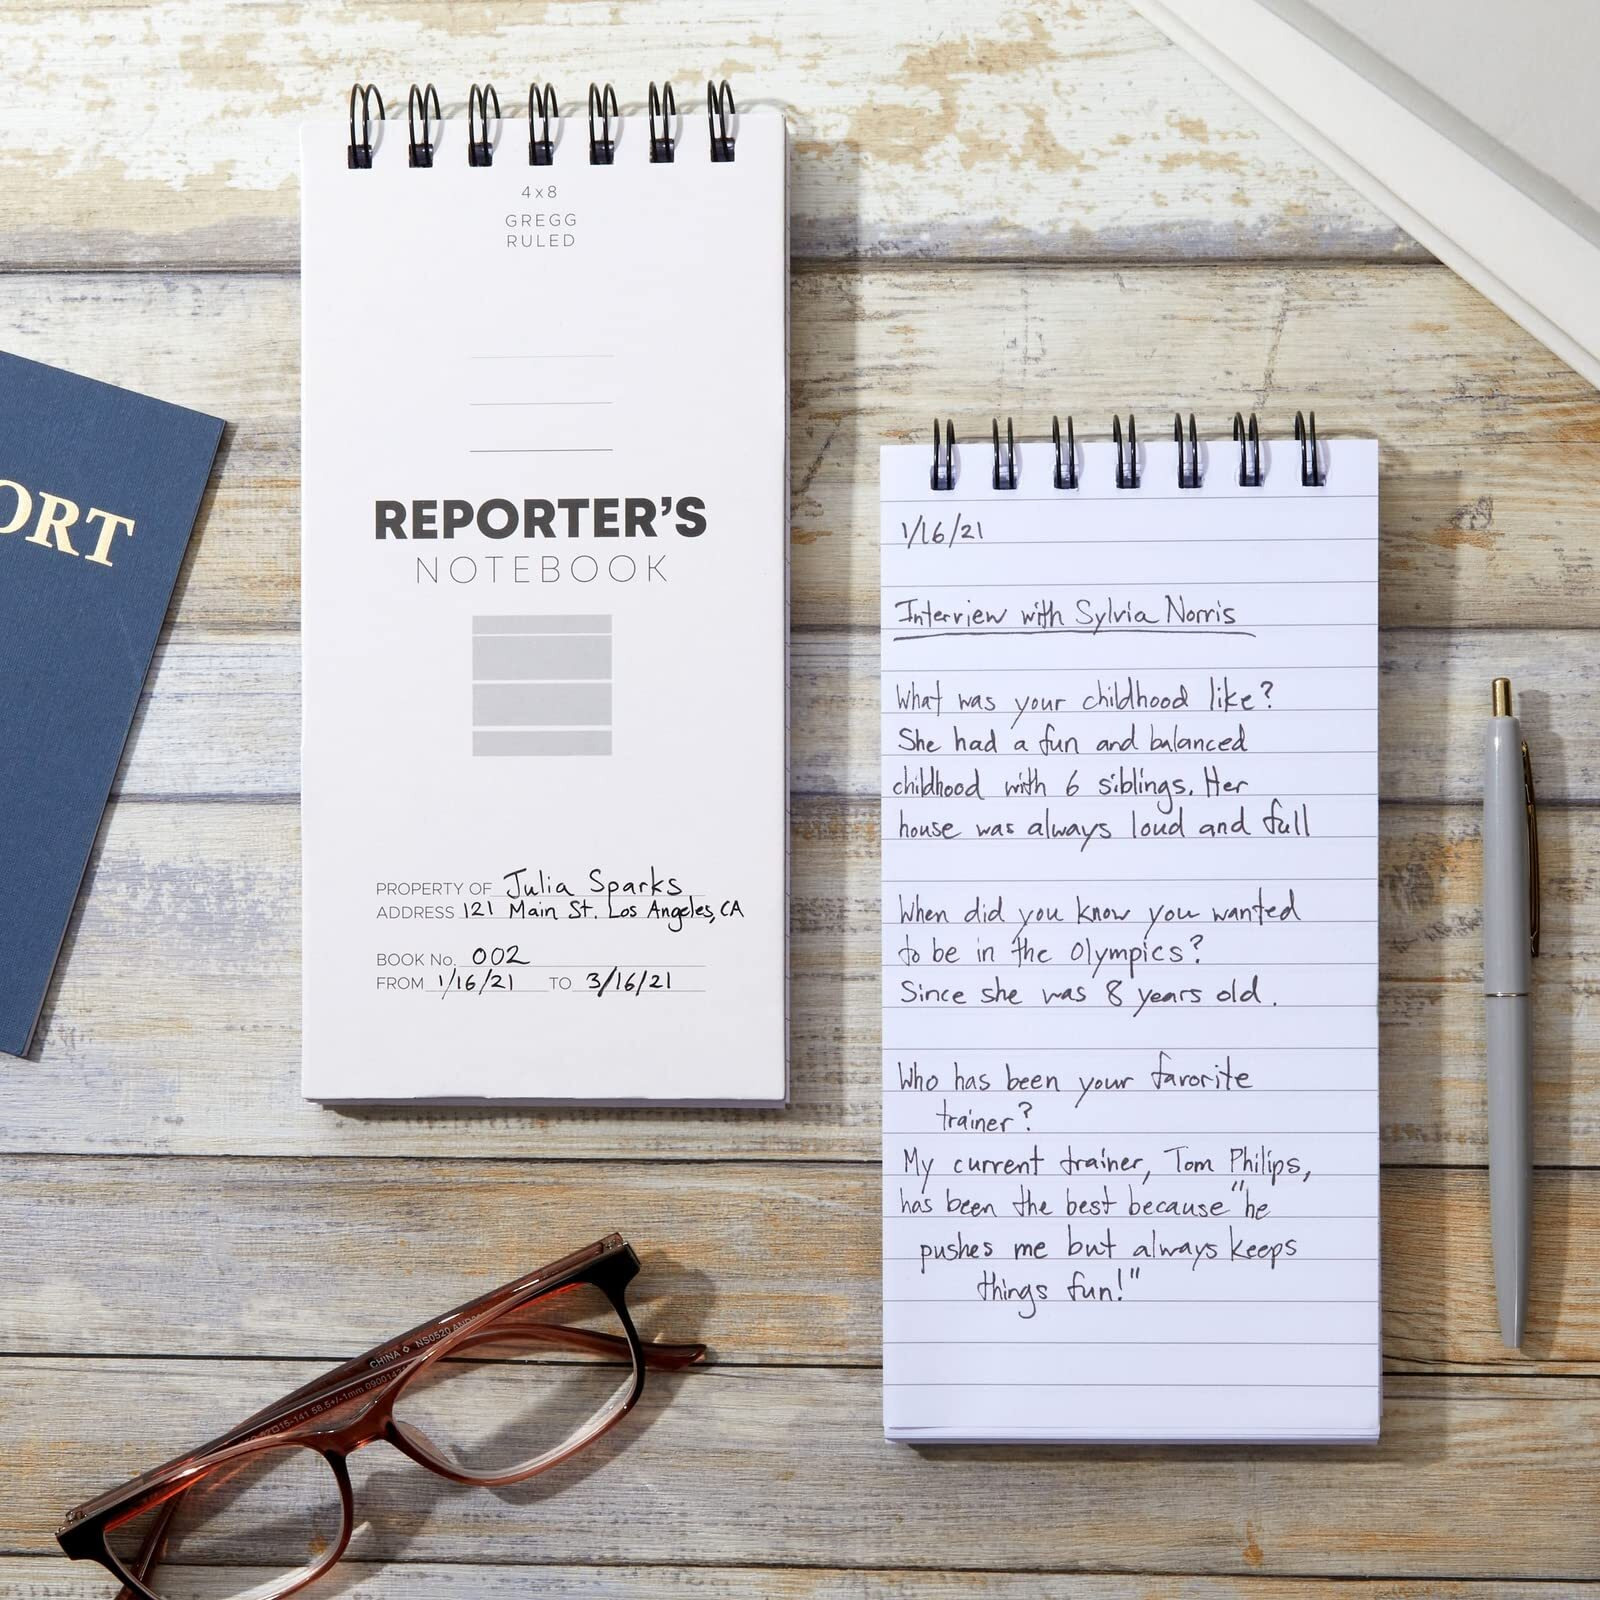 4x8
GREGG
RULED
REPORTER'S
NOTEBOOK
PROPERTY OF Julia Sparks
ADDRESS 121 Main St. Los Angeles, CA
BOOK No. 002
FROM 1/16/21 TO 3/16/21
ORT
1/16/21
Interview with Sylvia Norris
What was your childhood like?
She had a fun and balanced
childhood with 6 siblings. Her
house was always loud and full
When did you know you wanted
to be in the Olympics?
Since she was 8 years old.
Who has been your favorite
trainer?
My current trainer, Tom Philips,
has been the best because "he
pushes me but always keeps
things fun!"
CHINA ◇ NS0520
15-141 58.5+/-1mm